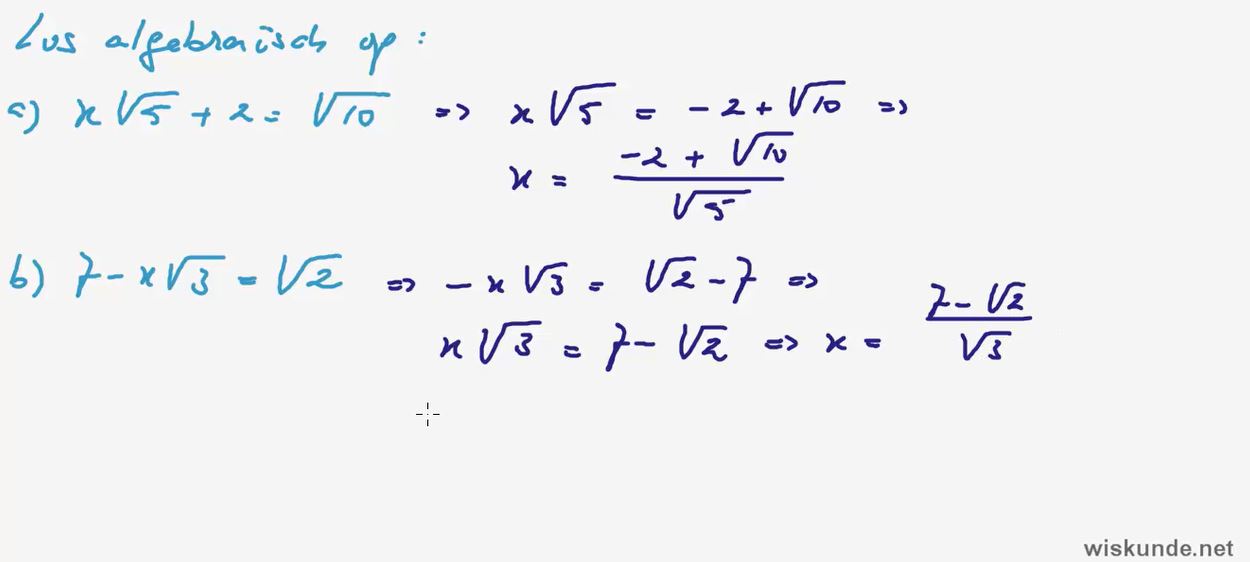 Los algebraïsch op :
a) x√5 + 2 = √10 => x√5 = -2 + √10 =>
x = (-2 + √10)/√5
b) 7 - x√3 = √2 => -x√3 = √2 - 7 =>
x√3 = 7 - √2 => x = (7 - √2)/√3
wiskunde.net